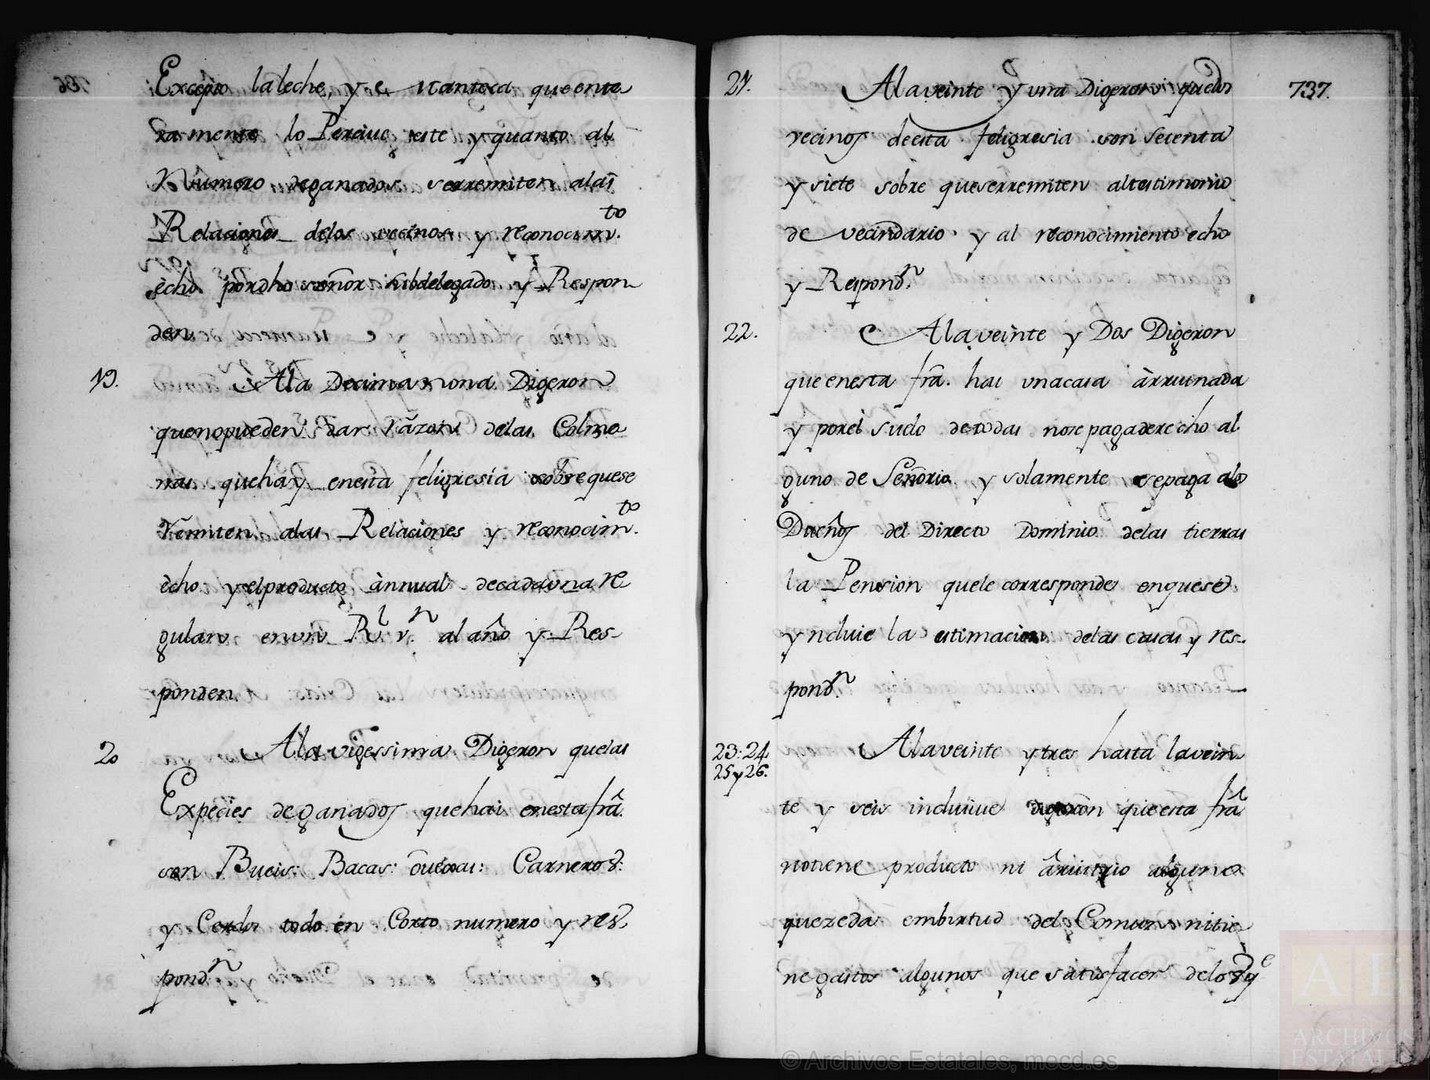 Excepto la leche, y e Manteca que ente
ra mente lo Perciue este y quanto al
Numero deganados serremiten alas
Relaciones delos vecinos y reconocim.to
echo pordho señor subdelegado y Respon
den
19. Ala Decima nona Digeron
quenopueden dar razon delas Colme
nas quehay enesta feligresía sobrequese
rremiten alas Relaciones y reconocim.to
echo yelproducto ànnual decadauna re
gularon enun R.l v.n al año y Res
ponden
20 Ala vigessima Digeron quelas
Expecies deganados quehai enesta frã.
son Bueis: Bacas: ouexas: Carneros:
y Cerdos todo en Corto numero y res
pond.n
21. Alaveinte y una Digeron quelos 737.
vecinos deesta feligresia son Setenta
y siete sobre queserremiten altestimonio
de vecindario y al reconocimiento echo
y Respond.n
22. Alaveinte y Dos Digeron
que enesta frã. hai unacasa àrruinada
y porel suelo de todas nose pagaderecho al
guno de Señorio y solamente sepaga alos
Dueños del Directo Dominio delas tierras
la Pension quele corresponde enquese
yncluie la estimacion delas casas y res
pond.n
23: 24 Alaveinte ytres hasta lavein
25 y 26.
te y seis inclusiue digeron queesta frã
notiene producto ni àruitrio alguno
quezeda embirtud del Comun nitie
ne gastos algunos que satisfacer delos q.e
© Archivos Estatales, mecd.es
ARCHIVOS
ESTATALES